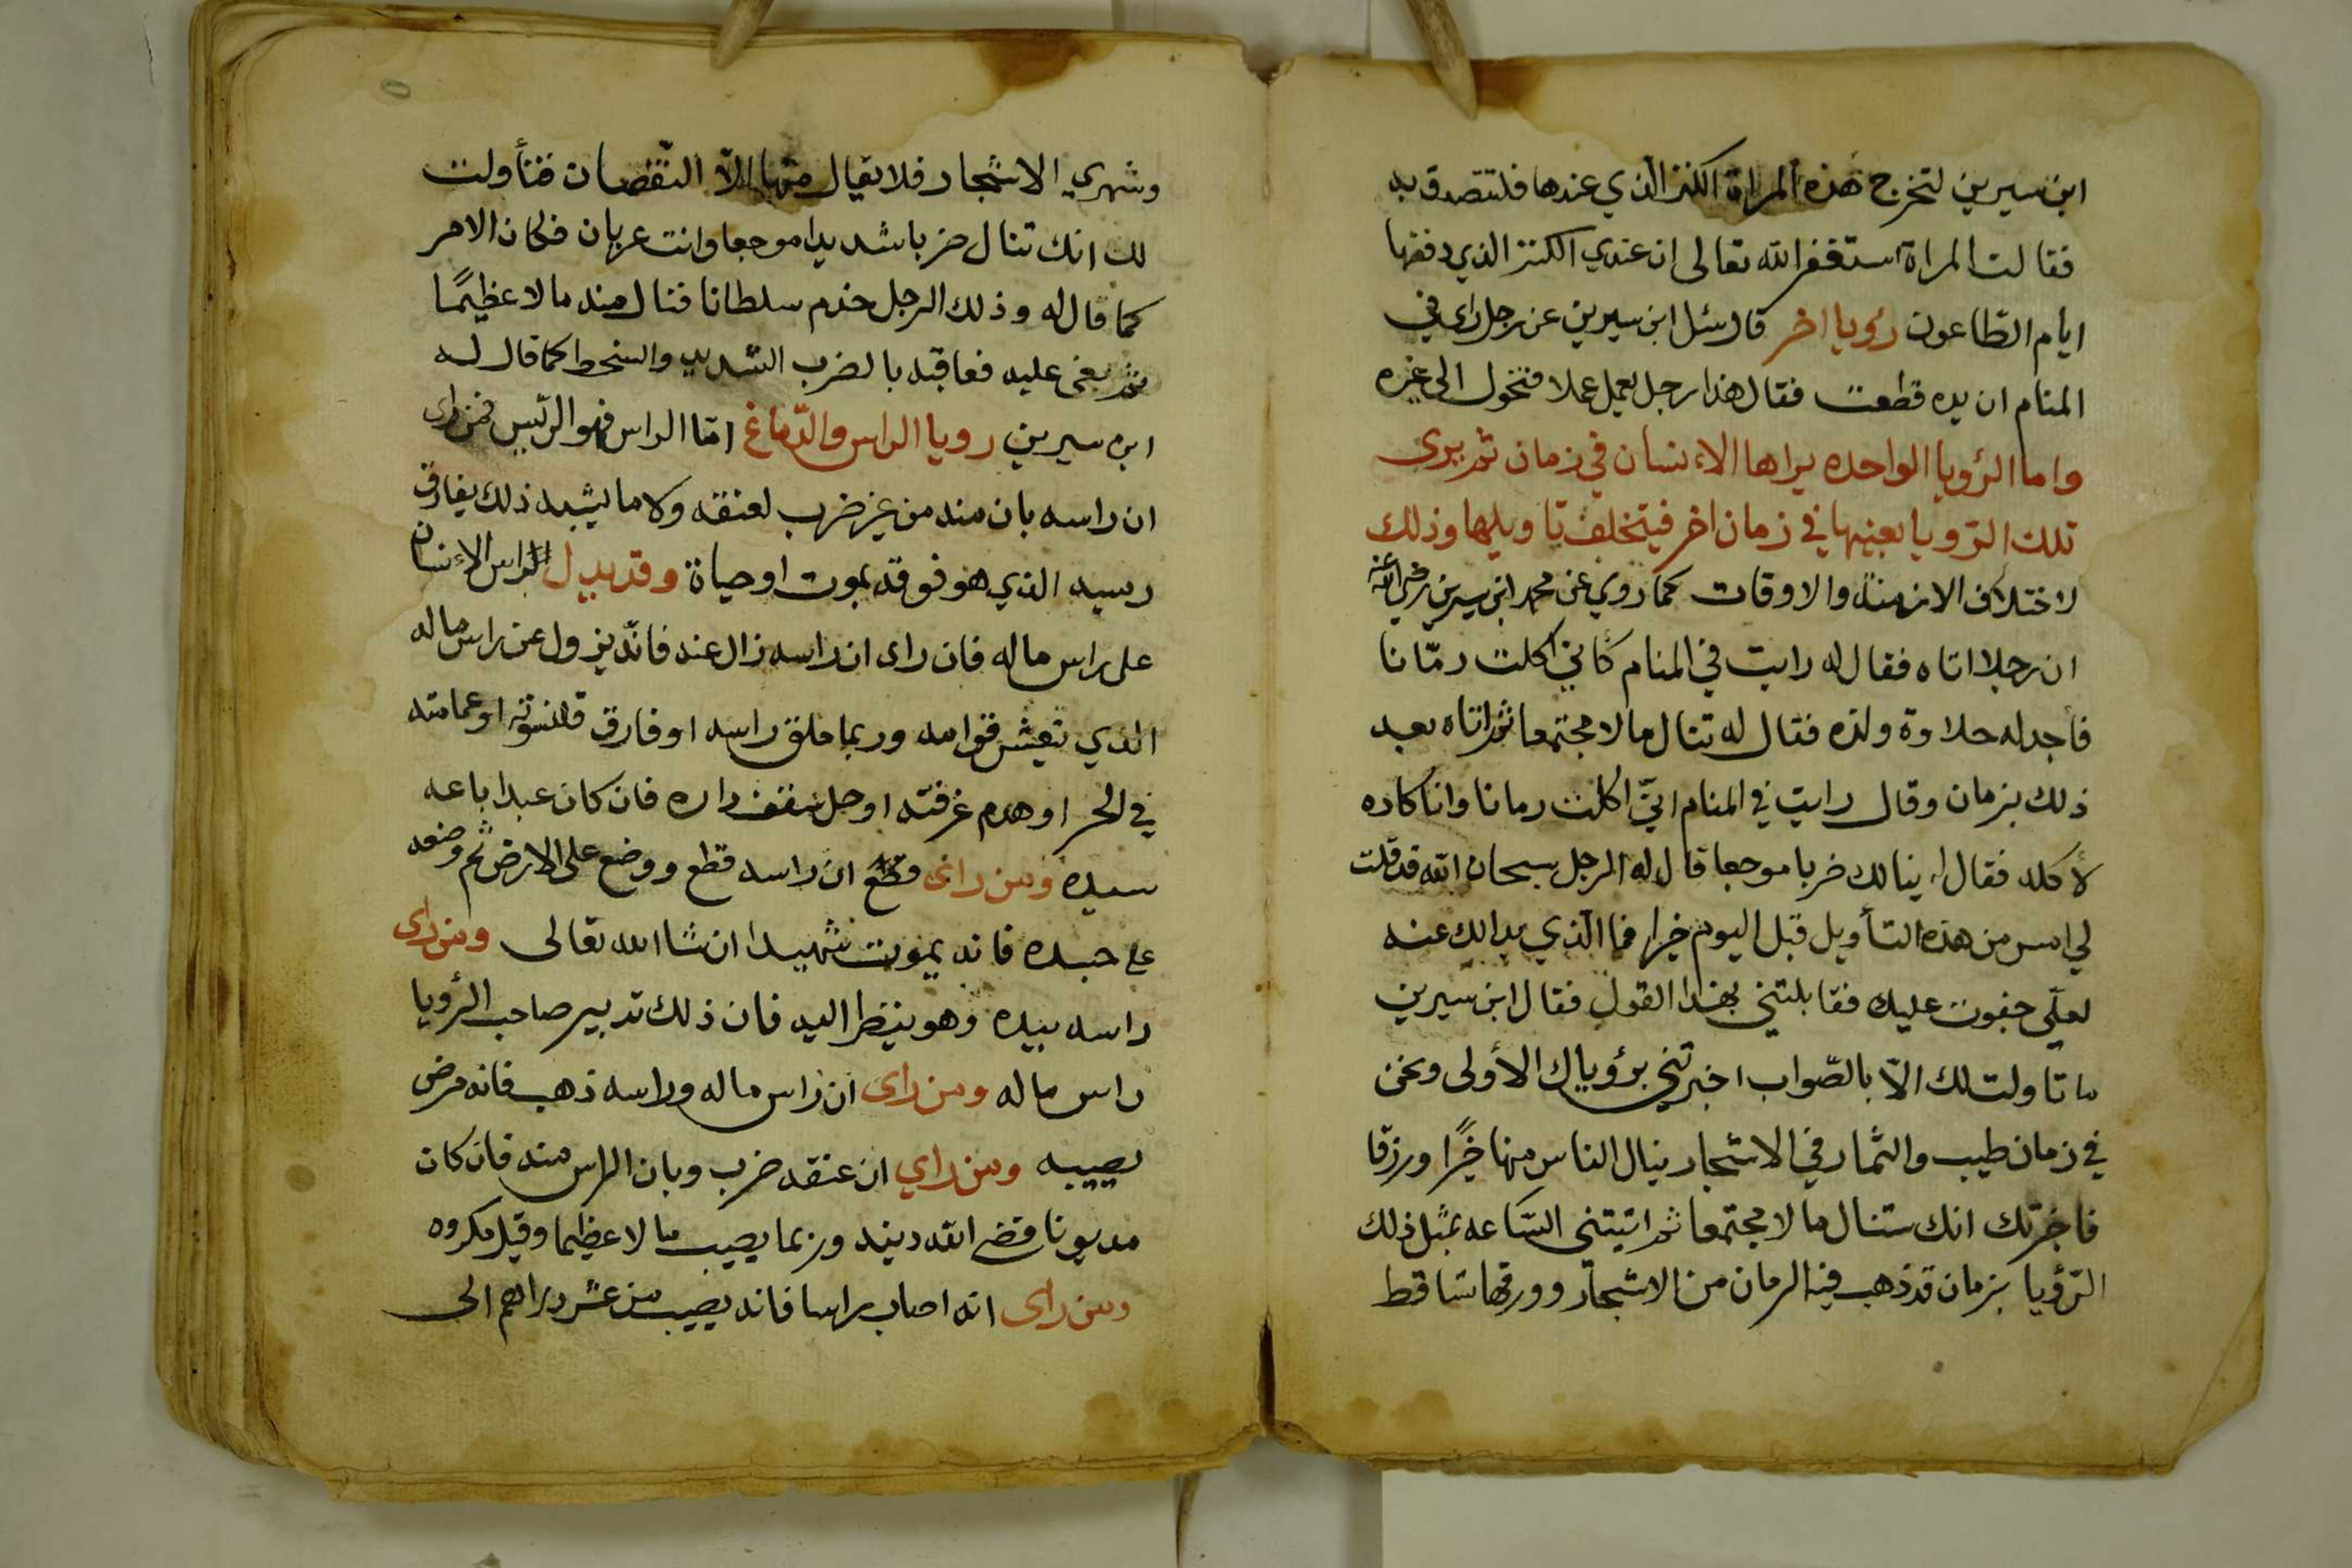 ابن سيرين لتخرج هذه المراة الكنز الذي عندها فلتتصدق به
فقالت المراة استغفر الله تعالى ان عندي الكنز الذي دفنها
ايام الطّاعون رؤيا اخر قال سئل ابن سيرين عن رجل راى في
المنام ان يده قطعت فقال هذا رجل يعمل عملا فتحول الى غيره
واما الرؤيا الواحده يراها الاءنسان في زمان ثم يرى
تلك الرّويا بعينها في زمان اخر فيتخلف تاويلها وذلك
لاختلاف الازمنة والاوقات كما روي عن محمد ابن سيرين رضي الله عنه
ان رجلا اتاه فقال له رايت في المنام كأني اكلت رمّانا
فأجد له حلاوة ولذه فقال له تنال مالا مجتمعا ثم اتاه بعد
ذلك بزمان وقال رايت في المنام انيّ اكلت رمانا وانا كاره
لأكله فقال ينالك ضربا موجعا قال له الرجل سبحان الله قد قلت
لي امس من هذه التأويل قبل اليوم خيرا فما الّذي بدا لك عنه
لعلّي جفوت عليك فقابلتني بهذا القول فقال ابن سيرين
ما تاولت لك الاّ بالصّواب اخبرتني برؤياك الأولى ونحن
في زمان طيب والثمار في الاشجار ينال الناس منها خيرًا ورزقا
فاخبرتك انك ستنال مالا مجتمعا ثم اتيتني السّاعه بمثل ذلك
الرّؤيا بزمان قد ذهب فيه الرمان من الاشجار وورقها تساقط
وشهري الاشجار فلا يقال منها الاّ النّقصان فتأولت
لك انك تنال ضربا شديدا موجعا وانت عريان فكان الامر
كما قال له وذلك الرجل خدم سلطانا فنال منه مالا عظيمًا
ثم بغى عليه فعاقبه بالضرب الشديد والسخط كما قال له
ابن سيرين رويا الراس والدّماغ امّا الراس فهو الرّئيس فمن راى
ان راسه بان منه من غير ضرب لعنقه ولا ما يشبه ذلك يفارق
رييسه الذي هو فوقه بموت او حياة وقد يدل الراس الاءنسان
على راس ماله فان راى ان راسه زال عنه فانّه يزول عن راس ماله
الذي تعيش قوامه وربما حلق راسه او فارق قلنسوته او عمامته
في الحر او هدم غرفته او حل سقف داره فان كان عبدا باعه
سيده ومن رائى قطع ان راسه قطع ووضع على الارض ثم وضعه
على جسده فانه يموت شهيدا ان شاالله تعالى ومن راى
راسه بيده وهو ينظر اليه فان ذلك تدبير صاحب الرؤيا
راس ماله ومن راى ان راس ماله وراسه ذهب فانه مرض
يصيبه ومن راي ان عنقه ضرب وبان الراس منه فان كان
مديونا قضى الله دينه وربما يصيب مالا عظيما وقيل مكروه
ومن راى انه اصاب راسا فانه يصيب من عشر دراهم الى